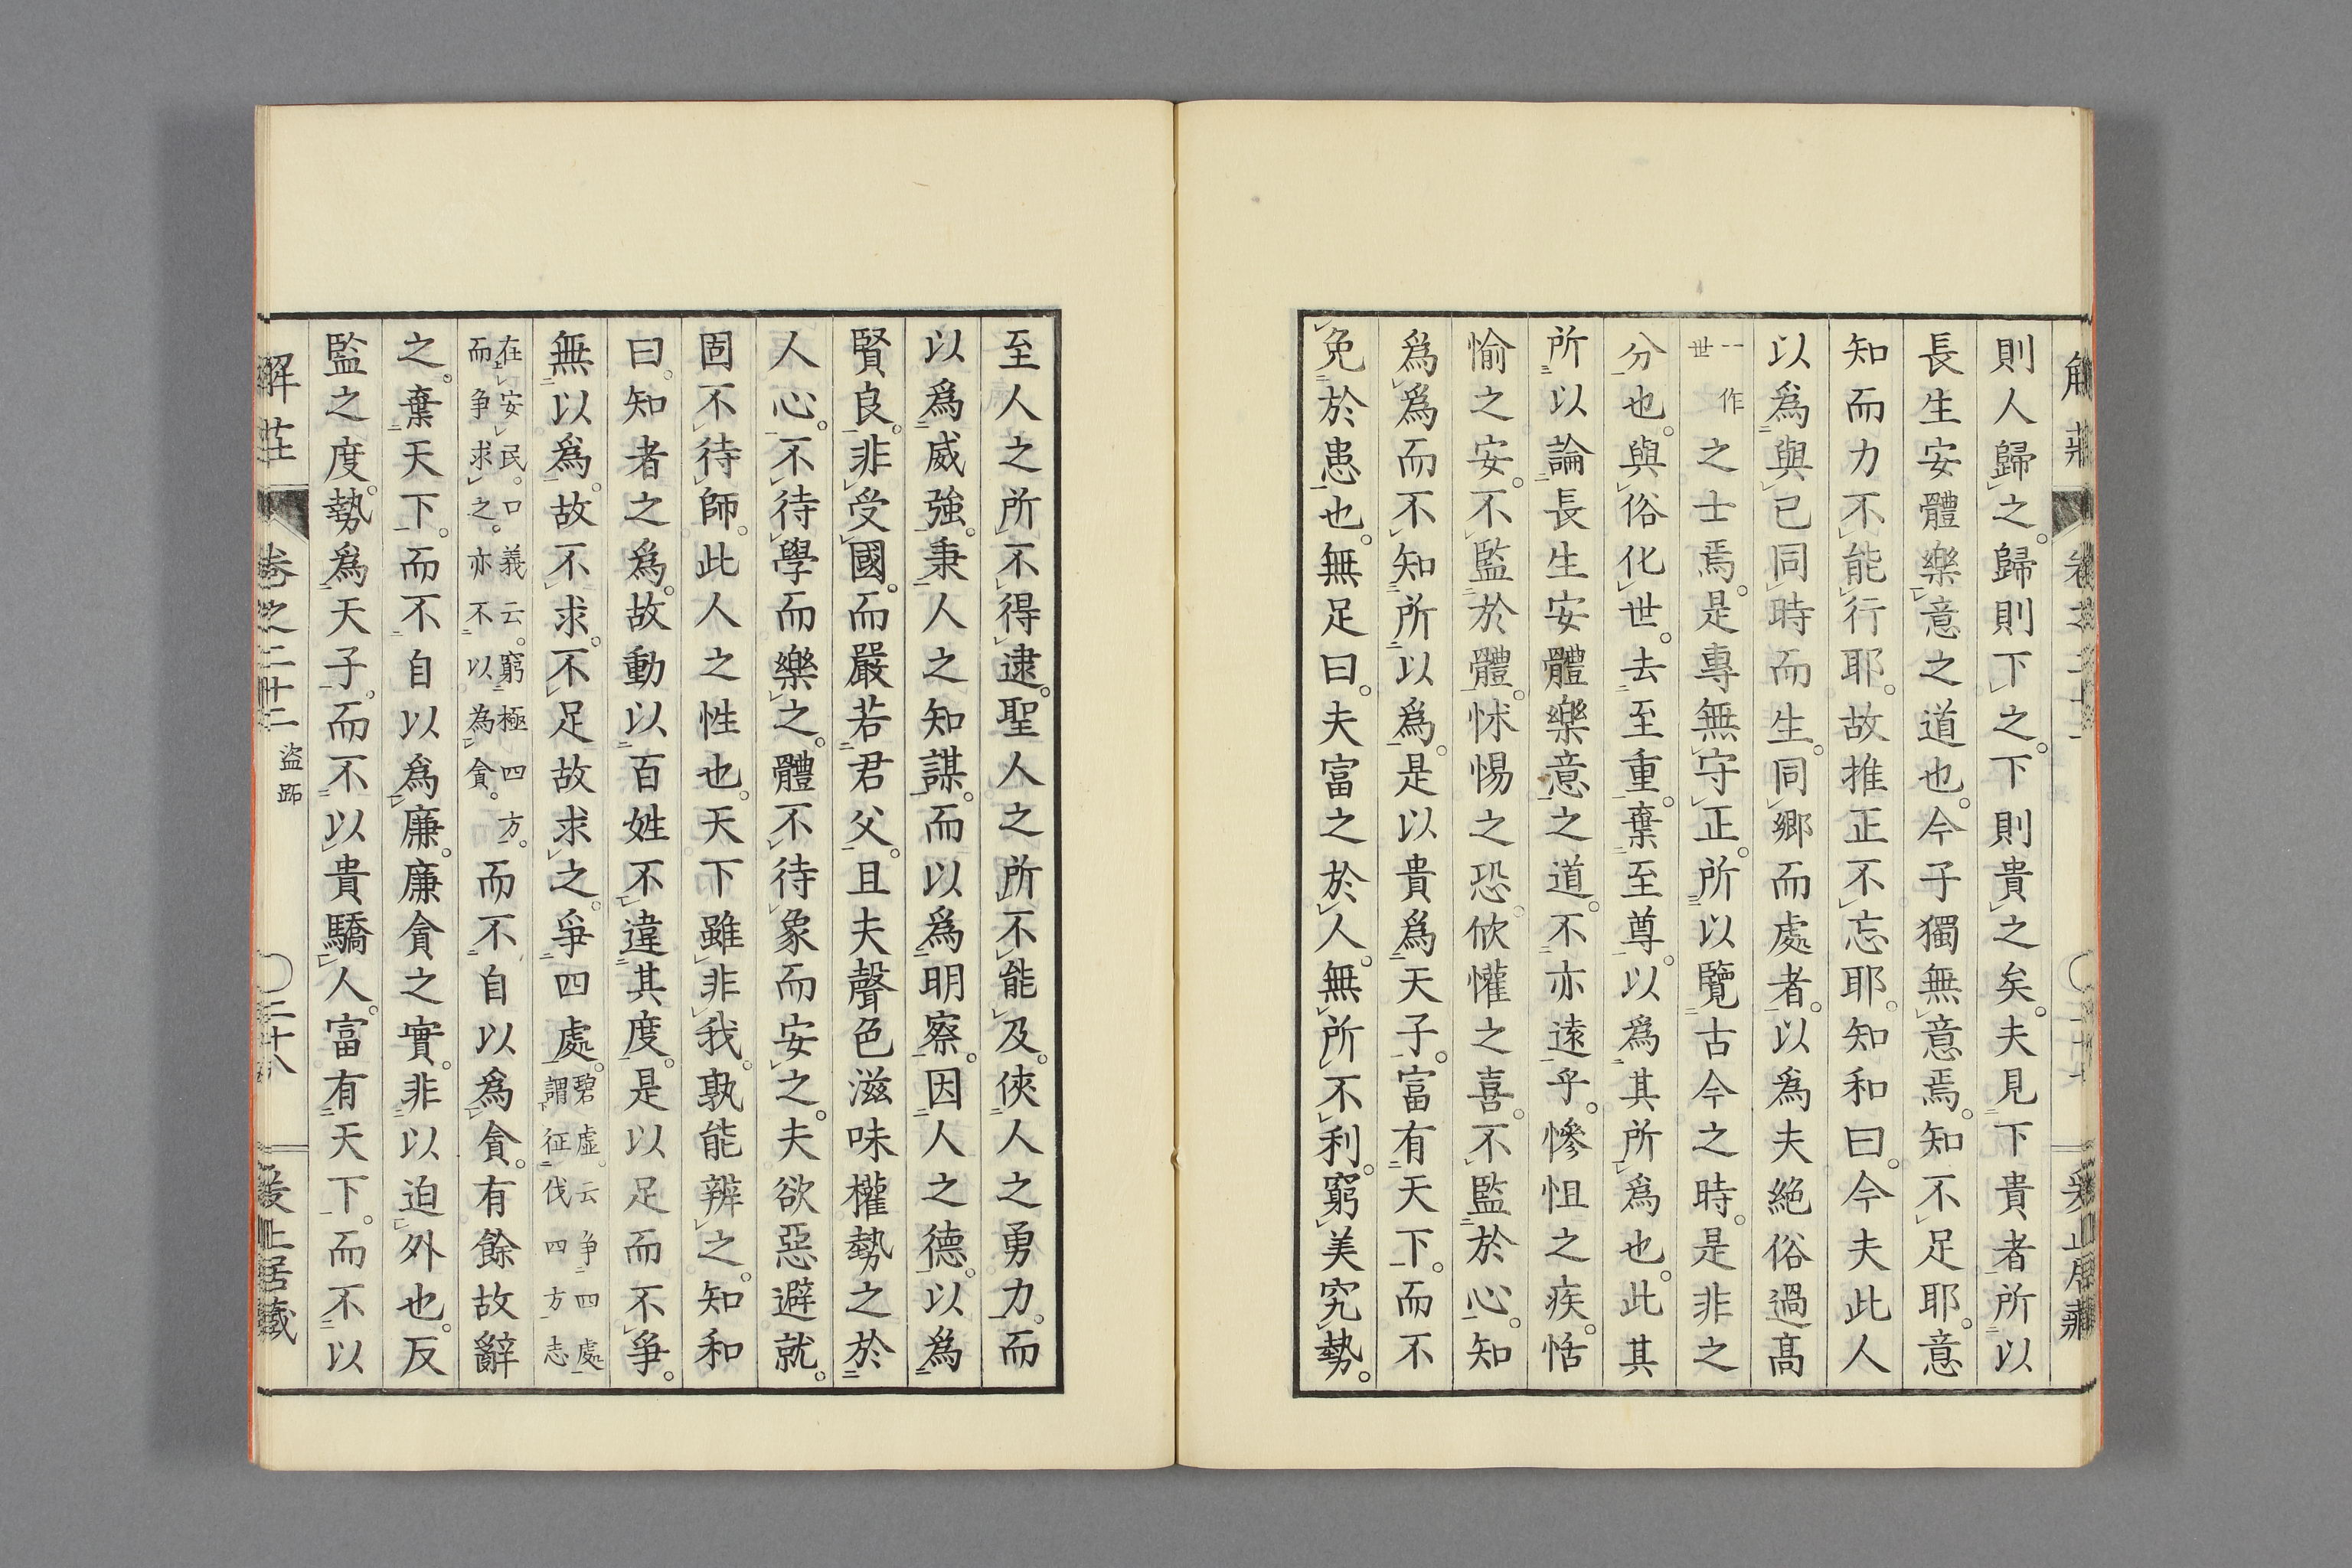 則人歸之。歸則下之。下則貴之矣。夫見下貴者所以
長生安體樂意之道也。今子獨無意焉。知不足耶。意
知而力不能行耶。故推正不忘耶。知和曰。今夫此人
以為與已同時而生。同鄉而處者。以為夫絶俗過髙
一作世之士焉。是專無守正。所以覽古今之時。是非之
分也。與俗化世。去至重。棄至尊。以為其所為也。此其
所以論長生安體樂意之道。不亦遠乎。慘怛之疾。恬
愉之安。不監於體。怵惕之恐。欣懽之喜。不監於心。知
為為而不知所以為。是以貴為天子。富有天下。而不
免於患也。無足曰。夫富之於人。無所不利。窮美究勢。
至人之所不得逮。聖人之所不能及。俠人之勇力。而
以為威強。秉人之知謀。而以為明察。因人之德。以為
賢良。非受國。而嚴若君父。且夫聲色滋味權勢之於
人心。不待學而樂之。體不待象而安之。夫欲惡避就。
固不待師。此人之性也。天下雖非我。孰能辨之。知和
曰。知者之為。故動以百姓不違其度。是以足而不爭。
無以為。故不求。不足故求之。爭四處。碧虛。云争四處謂征伐四方志
在安民。口義云。窮極四方。而争求之。亦不以為貪。而不自以為貪。有餘故辭
之。棄天下。而不自以為廉。廉貪之實。非以迫外也。反
監之度。勢為天子。而不以貴驕人。富有天下。而不以
解莊 卷之二十二 盜跖 〇二十八 爰止居藏